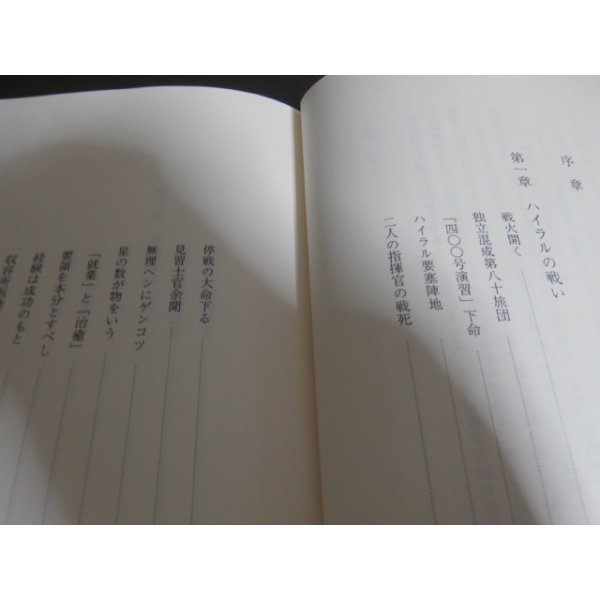 序章
第一章 ハイラルの戦い
戦火開く
独立混成第八十旅団
「四〇〇号演習」下命
ハイラル要塞陣地
二人の指揮官の戦死
停戦の大命下る
見習士官余聞
無理ヘンにゲンコツ
星の数が物をいう
「就業」と「治癒」
要領を本分とすべし
経験は成功のもと
収容所